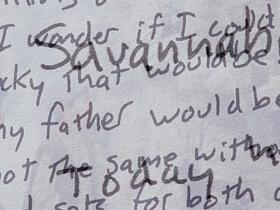 I wonder if I could
Savannah
cky that would be
my father would b
not the same with
Today
for both